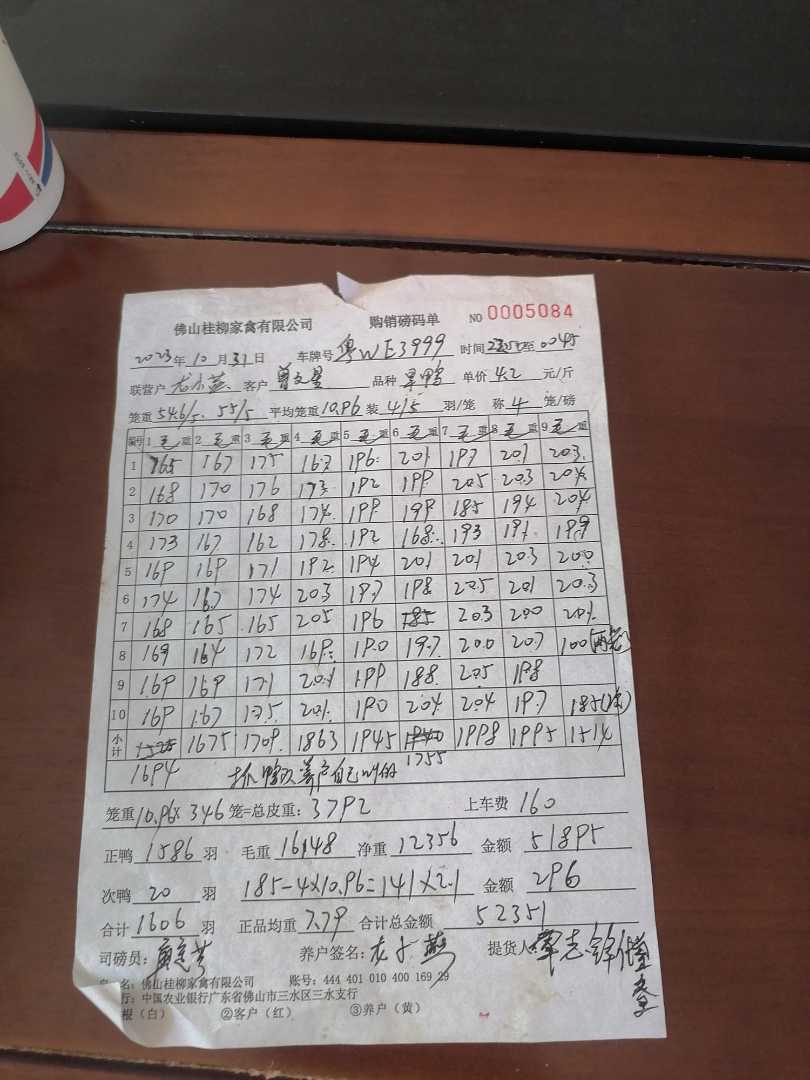 佛山桂柳家禽有限公司 购销磅码单 NO 0005084
2023年10月31日 车牌号 粤WE3999 时间 至0045
联营户 客户 曾文星 品种 旱鸭 单价 4.2 元/斤
笼重 54.6/5. 55/5 平均笼重 10.96 装 4/5 羽/笼 称 4 笼/磅
编号 1 毛重 2 毛重 3 毛重 4 毛重 5 毛重 6 毛重 7 毛重 8 毛重 9 毛重
1 165 167 175 167 196 201 197 201 203
2 168 170 176 173 192 199 205 203 204
3 170 170 168 174 199 199 185 194 204
4 173 167 162 178 192 168 193 191 199
5 169 169 171 192 194 201 201 203 200
6 174 167 174 203 197 198 205 201 203
7 168 165 165 205 196 185 203 200 201
8 169 164 172 169 190 197 200 207 100(两笼)
9 169 169 171 201 199 188 205 198
10 169 167 175 201 190 204 204 197 185(次)
小计 1675 1709 1863 1945 1998 1995 1514
1694 1755
养户自己叫的
笼重 10.96× 346 笼=总皮重: 3792 上车费 160
正鸭 1586 羽 毛重 16148 净重 12356 金额 51895
次鸭 20 羽 185-4×10.96=141×2.1 金额 296
合计 1606 羽 正品均重 7.79 合计总金额 52351
司磅员: 养户签名: 提货人
名: 佛山桂柳家禽有限公司 账号: 444 401 010 400 169 29
行: 中国农业银行广东省佛山市三水区三水支行
根(白) ②客户(红) ③养户(黄)